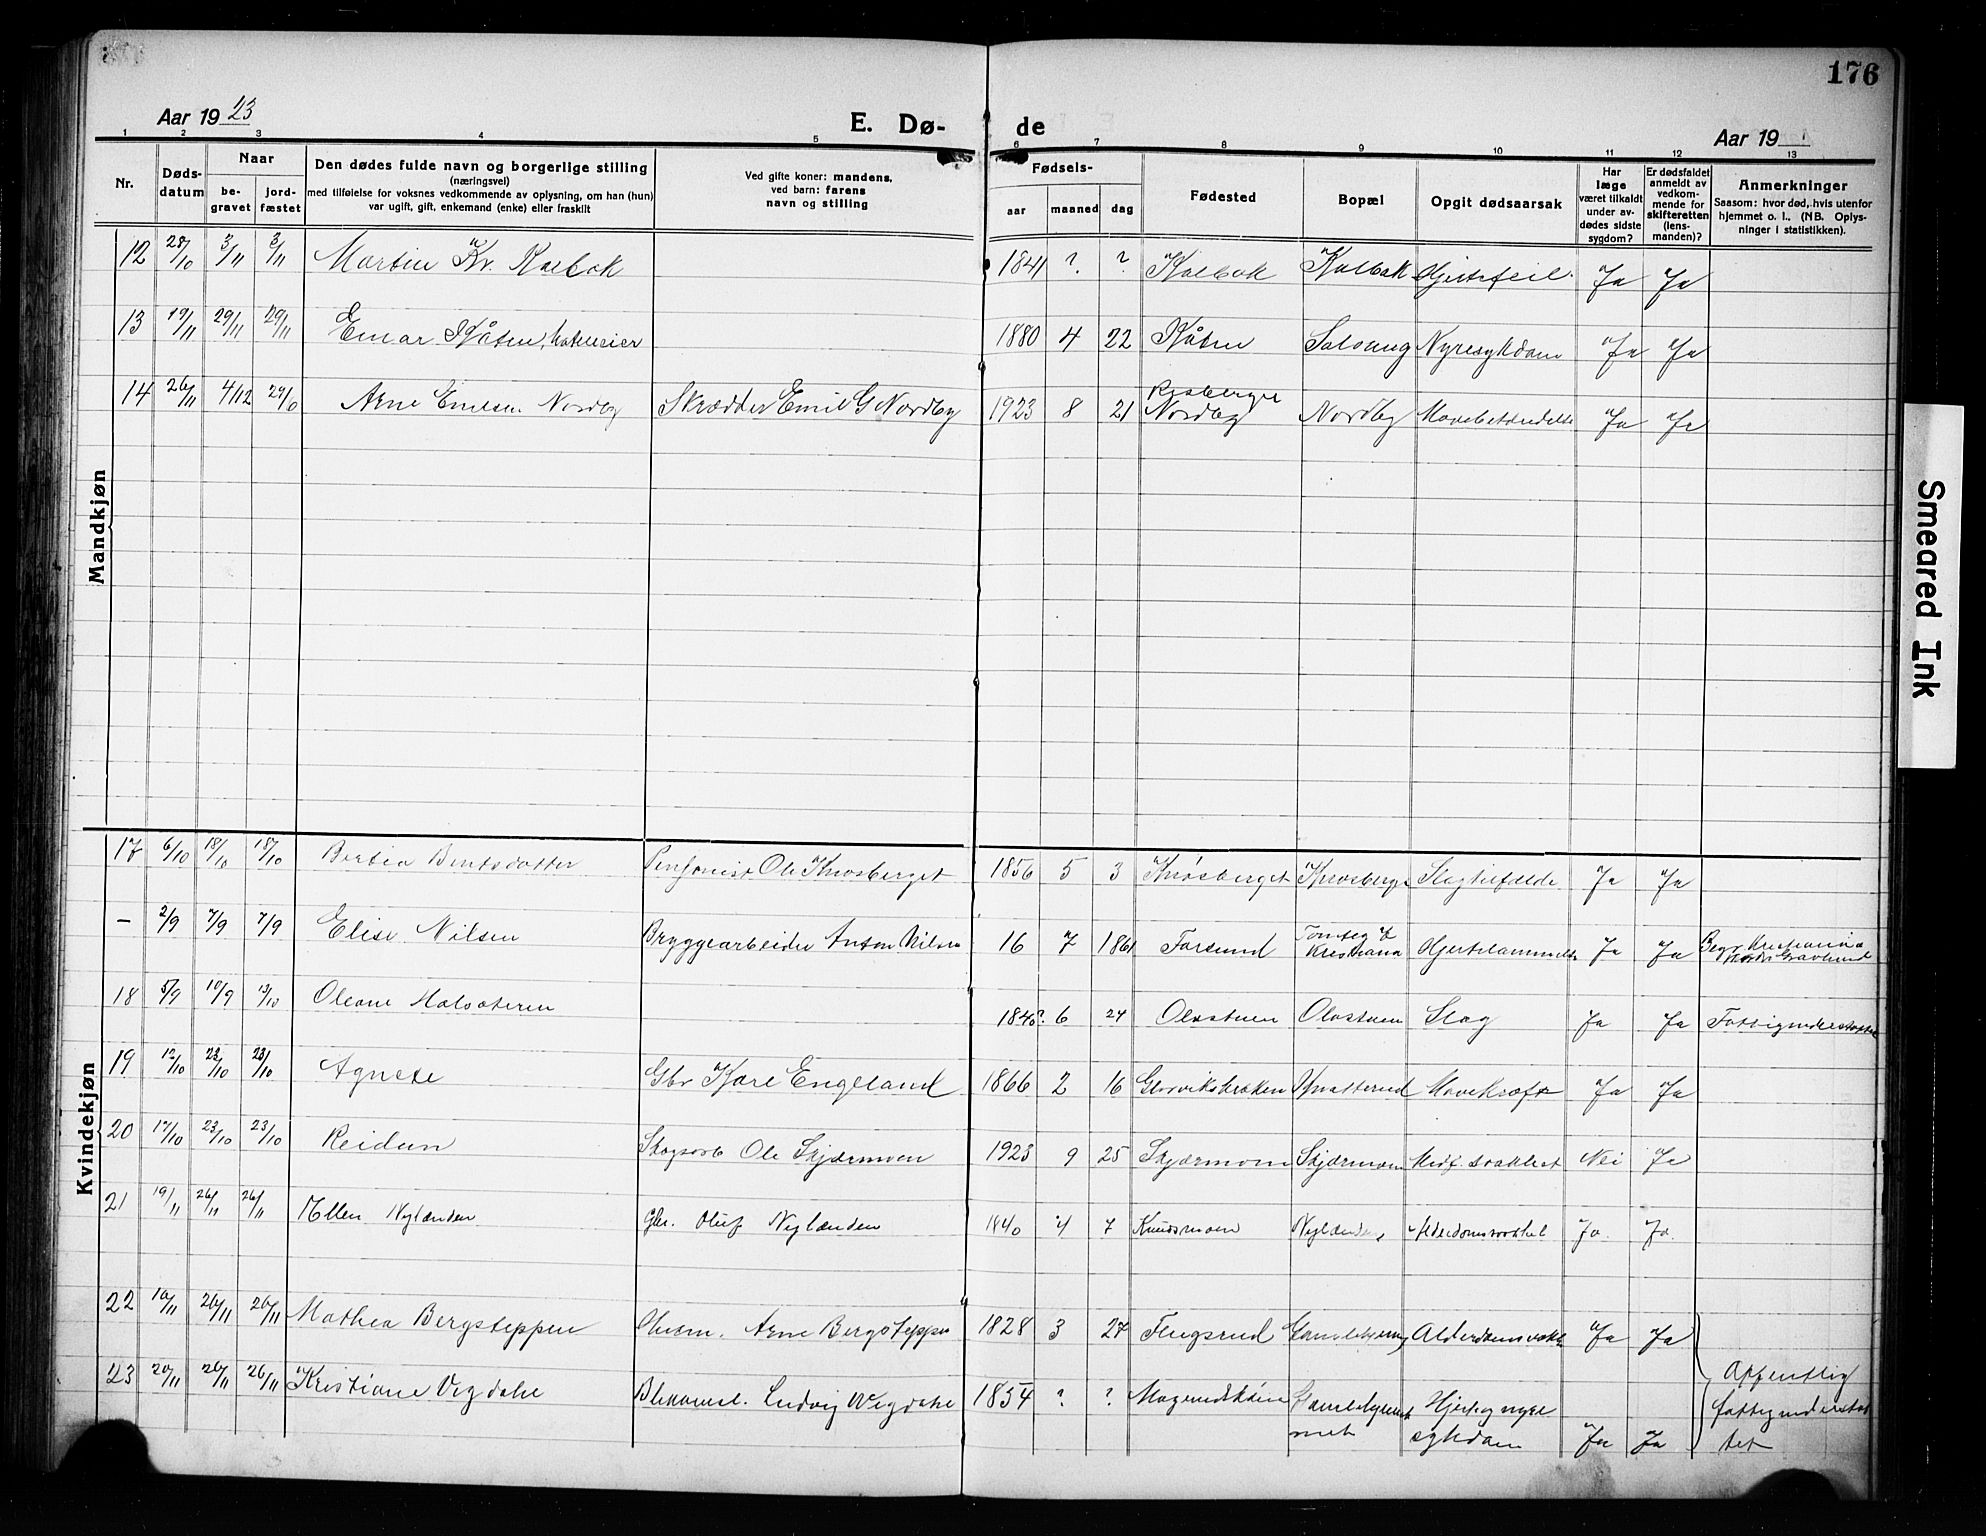 176
Aar 1923
E. Dø-
de
Aar 19
1 2 3 4 5 6 7 8 9 10 11 12 13
Nr.
Døds-
datum
Naar
be-
gravet
jord-
fæstet
Den dødes fulde navn og borgerlige stilling
(næringsvei)
med tilføielse for voksnes vedkommende av oplysning, om han (hun)
var ugift, gift, enkemand (enke) eller fraskilt
Ved gifte koner: mandens,
ved barn: farens
navn og stilling
Fødsels-
aar
maaned
dag
Fødested
Bopæl
Opgit dødsaarsak
Har
læge
været tilkaldt
under av-
dødes sidste
sygdom?
Er dødsfaldet
anmeldt av
vedkom-
mende for
skifteretten
(lens-
manden)?
Anmerkninger
Saasom: hvor død, hvis utenfor
hjemmet o. l., (NB. Oplys-
ninger i statistikken).
Mandkjøn
12 28/10 3/11 3/11 Martin Kr. Kalbak 1841 ? ? Kalbak Kalbak Hjertefeil Ja Ja
13 19/11 29/11 29/11 Einar Kåten, 1880 4 22 Kåten Solvang Nyresykdom Ja Ja
14 26/11 4/12 Arne Emilsen Nordby Skrædder Emil G Nordby 1923 8 21 Nordby Nordby Mavebetændelse Ja Ja
Kvindekjøn
17 6/10 18/10 18/10 Bertea Berntsdatter Ole 1856 5 3 Ja Ja
— 2/9 7/9 7/9 Elise Nilsen Bryggearbeider Anton Nilsen 16 7 1861 Farsund Kristiania Hjertelammelse Ja Ja Begr Kristiania
Gravlund
18 5/9 10/9 Oleane 1840? 6 24 Olastuen Olastuen Slag Ja Ja Fattigunderstøttet
19 12/10 23/10 23/10 Agnete Gbr Kare Engeland 1866 2 16 Mavekræft Ja Ja
20 17/10 23/10 23/10 Reidun Skogsarb Ole Skjærmoen 1923 9 25 Skjærmoen Skjærmoen Medf. svakhet Nei Ja
21 19/11 26/11 26/11 Ellen Nylænden Gbr. Oluf Nylænden 1840 4 7 Knudsmoen Nylænden Alderdomssvakhet Ja Ja
22 16/11 26/11 26/11 Mathea Bergsteppen Arne Bergsteppen 1828 3 27 Flugsrud Alderdomsvakh Ja Ja
23 20/11 26/11 26/11 Kristiane Vegdahl Ludvig Wegdahl 1854 ? ? Hjerte og nyre
sykdom Ja Ja
Offentlig
fattigunderstøt
tet
Smeared Ink